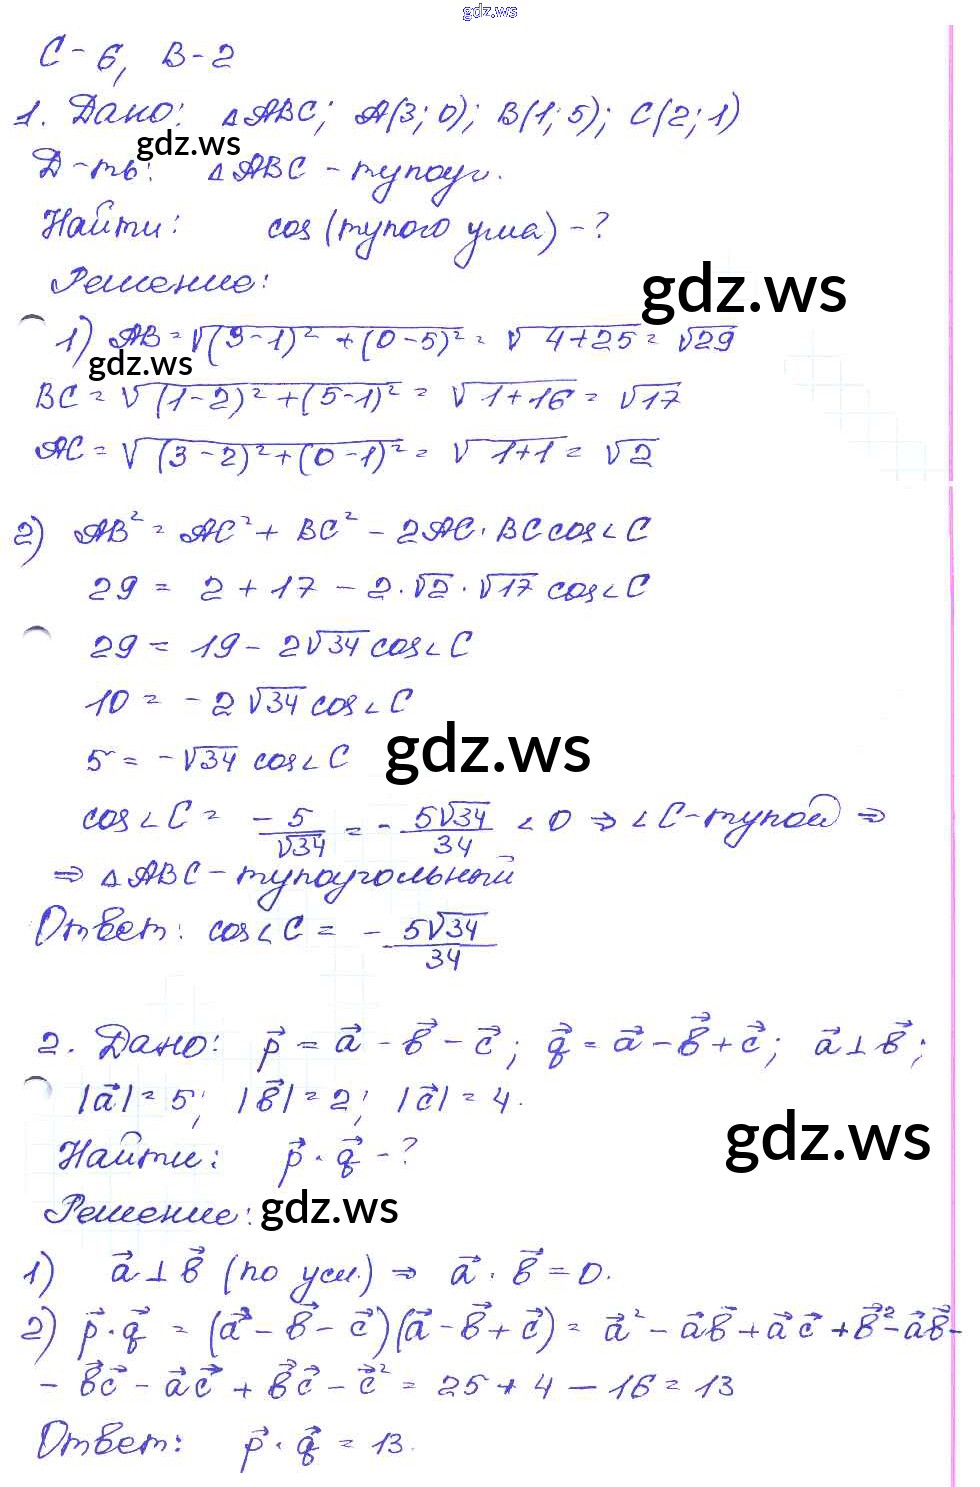 gdz.ws
С-6, В-2
1. Дано: △ABC; A(3; 0); B(1; 5); C(2; 1)
gdz.ws
Д-ть: △ABC - тупоуг.
Найти: cos (тупого угла) - ?
Решение:
gdz.ws
1) AB = √((3-1)² + (0-5)²) = √(4+25) = √29
gdz.ws
BC = √((1-2)² + (5-1)²) = √(1+16) = √17
AC = √((3-2)² + (0-1)²) = √(1+1) = √2
2) AB² = AC² + BC² - 2AC · BC cos∠C
29 = 2 + 17 - 2 · √2 · √17 cos∠C
29 = 19 - 2√34 cos∠C
10 = -2√34 cos∠C
5 = -√34 cos∠C
gdz.ws
cos∠C = -5/√34 = -5√34/34 < 0 ⇒ ∠C - тупой ⇒
⇒ △ABC - тупоугольный
Ответ: cos∠C = -5√34/34
2. Дано: p⃗ = a⃗ - b⃗ - c⃗; q⃗ = a⃗ - b⃗ + c⃗; a⃗ ⊥ b⃗;
|a⃗| = 5; |b⃗| = 2; |c⃗| = 4.
gdz.ws
Найти: p⃗ · q⃗ - ?
Решение:
gdz.ws
1) a⃗ ⊥ b⃗ (по усл.) ⇒ a⃗ · b⃗ = 0.
2) p⃗ · q⃗ = (a⃗ - b⃗ - c⃗)(a⃗ - b⃗ + c⃗) = a⃗² - a⃗b⃗ + a⃗c⃗ + b⃗² - a⃗b⃗ -
- b⃗c⃗ - a⃗c⃗ + b⃗c⃗ - c⃗² = 25 + 4 - 16 = 13
Ответ: p⃗ · q⃗ = 13.